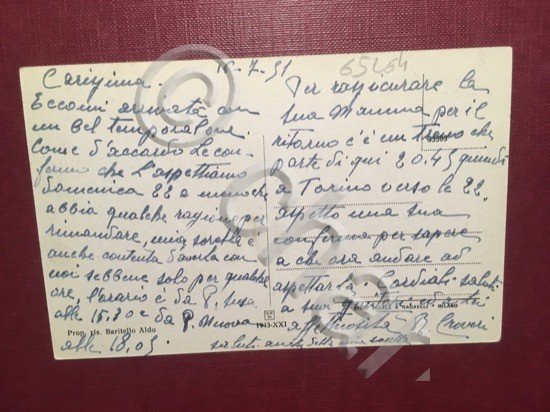 16-7-51
65264
Carissima.
Eccomi arrivata con
un bel temporalone.
Come d'accordo Le con-
fermo che L'aspettiamo
domenica 22 a meno che
abbia qualche ragione per
rimandare, mia sorella è
anche contenta d'averla con
noi sebbene solo per qualche
ore, l'orario è da P. Susa
alle 15.30 e da P. Nuova
alle 18.05
Per rassicurare la
sua Mamma per il
ritorno c'è un treno che
parte di qui 20.45 quindi
a Torino verso le 22.
aspetto una sua
conferma per sapere
a che ora andare ad
aspettarla. Cordiali saluti
a suoi
saluti anche dalla mia sorella
Prop. ris. Baritello Aldo
1943-XXI
MILANO